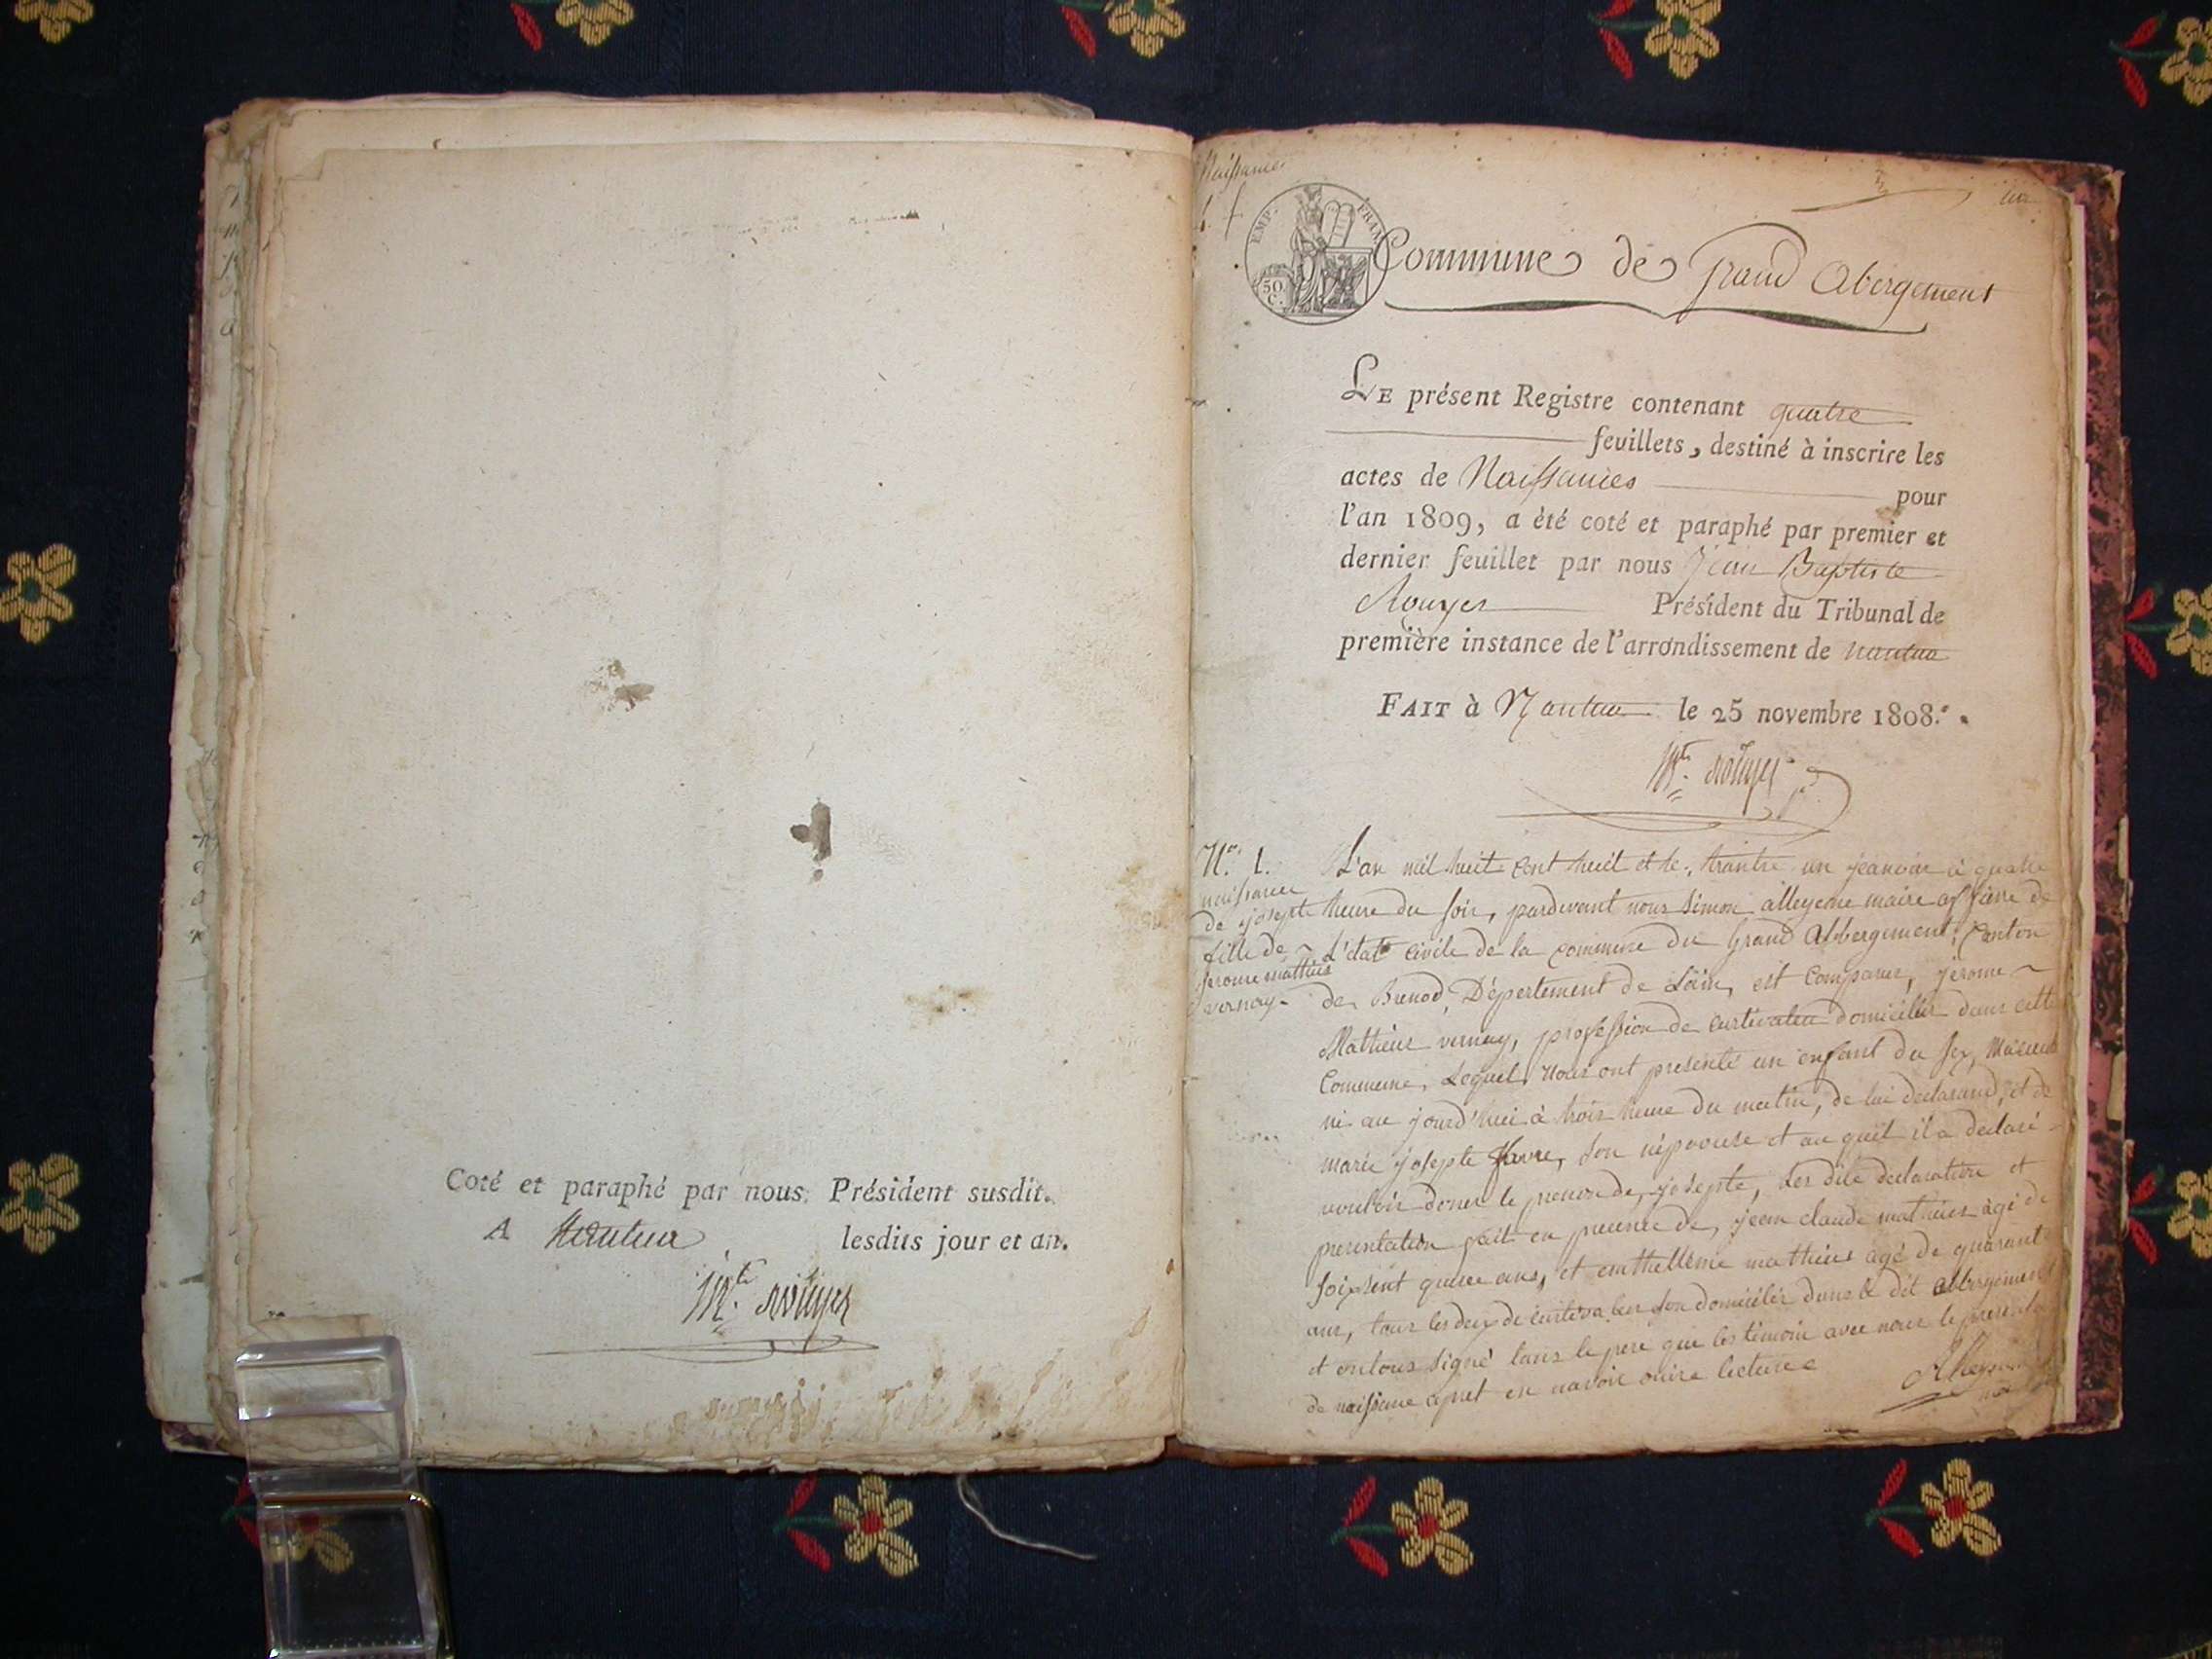 Coté et paraphé par nous Président susdit.
A Nantua lesdits jour et an.
Naissances
EMP. FRAN.
50.
C.
Commune de Grand Abergement
LE présent Registre contenant quatre
feuillets, destiné à inscrire les
actes de Naissances pour
l'an 1809, a été coté et paraphé par premier et
dernier feuillet par nous Jean Baptiste
Rouyer Président du Tribunal de
première instance de l'arrondissement de nantua
FAIT à Nantua le 25 novembre 1808.
N.º 1.
naissance
de josepte
fille de
jerome mathieu
vernay
L'an mil huit cent huit et le trantre un jeanvier à quatre
heure du soir, pardevant nous Simon alleyene maire of
L'état civile de la commune du Grand Abbergement, Canton
de Brenod, Département de Lain, est Comparu, jerome
Mathieu vernay, profession de curtivateu domicillié dans cette
Commune, Lequel Nous ont presenté un enfant du sex
né au jourd'hui à trois heure du matin, de lui declarand, et de
marie josepte favre, son népoouse et au quel il a declaré
vouloir doner le prenon de josepte, Les dite declaration et
presentation fait en presence de, jean claude mathieu àgé de
soixsent quinse ans, et mathieu agé de quarante
ans, tous les deux de curtivateur son domicilié dans le dit abbergement
et ontous signé tans le pere que les témoin avec nous le present
de naissance apret en navoir lecture